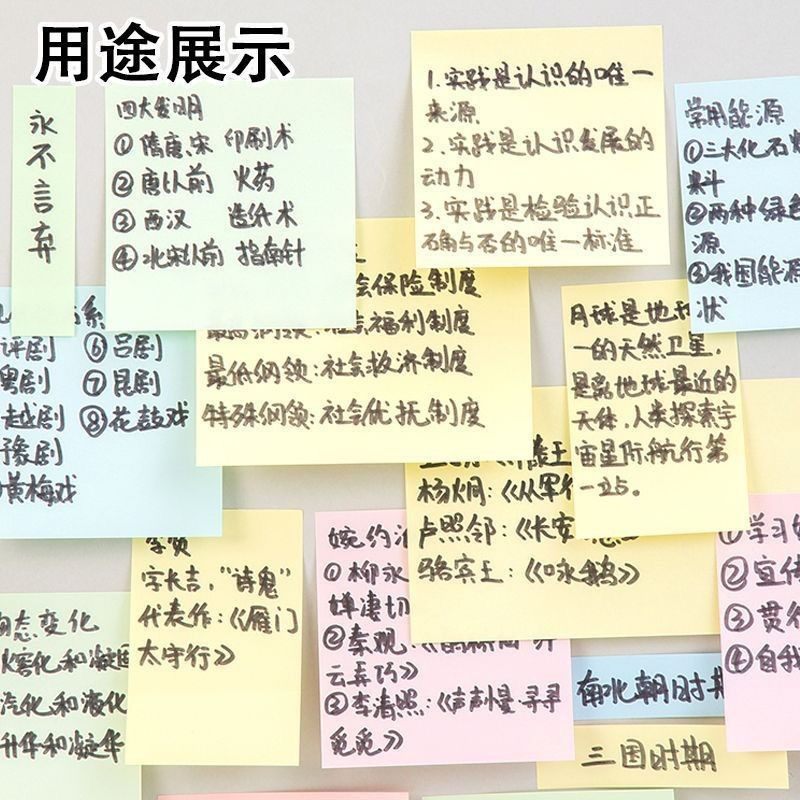 用途展示
永不言弃
四大发明
① 隋唐、宋 印刷术
② 唐以前 火药
③ 西汉 造纸术
④ 北宋以前 指南针
1. 实践是认识的唯一
来源
2. 实践是认识发展的
动力
3. 实践是检验认识正
确与否的唯一标准
常用能源
①三大化石燃
料
②两种绿色
源
③我国能源
状
系
评剧 ⑥吕剧
粤剧 ⑦昆剧
越剧 ⑧花鼓戏
豫剧
黄梅戏
会保险制度
最高纲领:社会福利制度
最低纲领:社会救济制度
特殊纲领:社会优抚制度
月球是地球
一的天然卫星,
是离地球最近的
天体,人类探索宇
宙星际航行第
一站。
王
杨炯:《从军行
卢照邻:《长安
骆宾王:《咏鹅》
李贺
字长吉,"诗鬼"
代表作:《雁门
太守行》
婉约派
①柳永
蝉凄切
②秦观:《鹊桥仙·纤
云弄巧》
③李清照:《声声慢·寻寻
觅觅》
①学习
②宣传
③贯行
④自我
物态变化
熔化和凝固
汽化和液化
升华和凝华
南北朝时期
三国时期